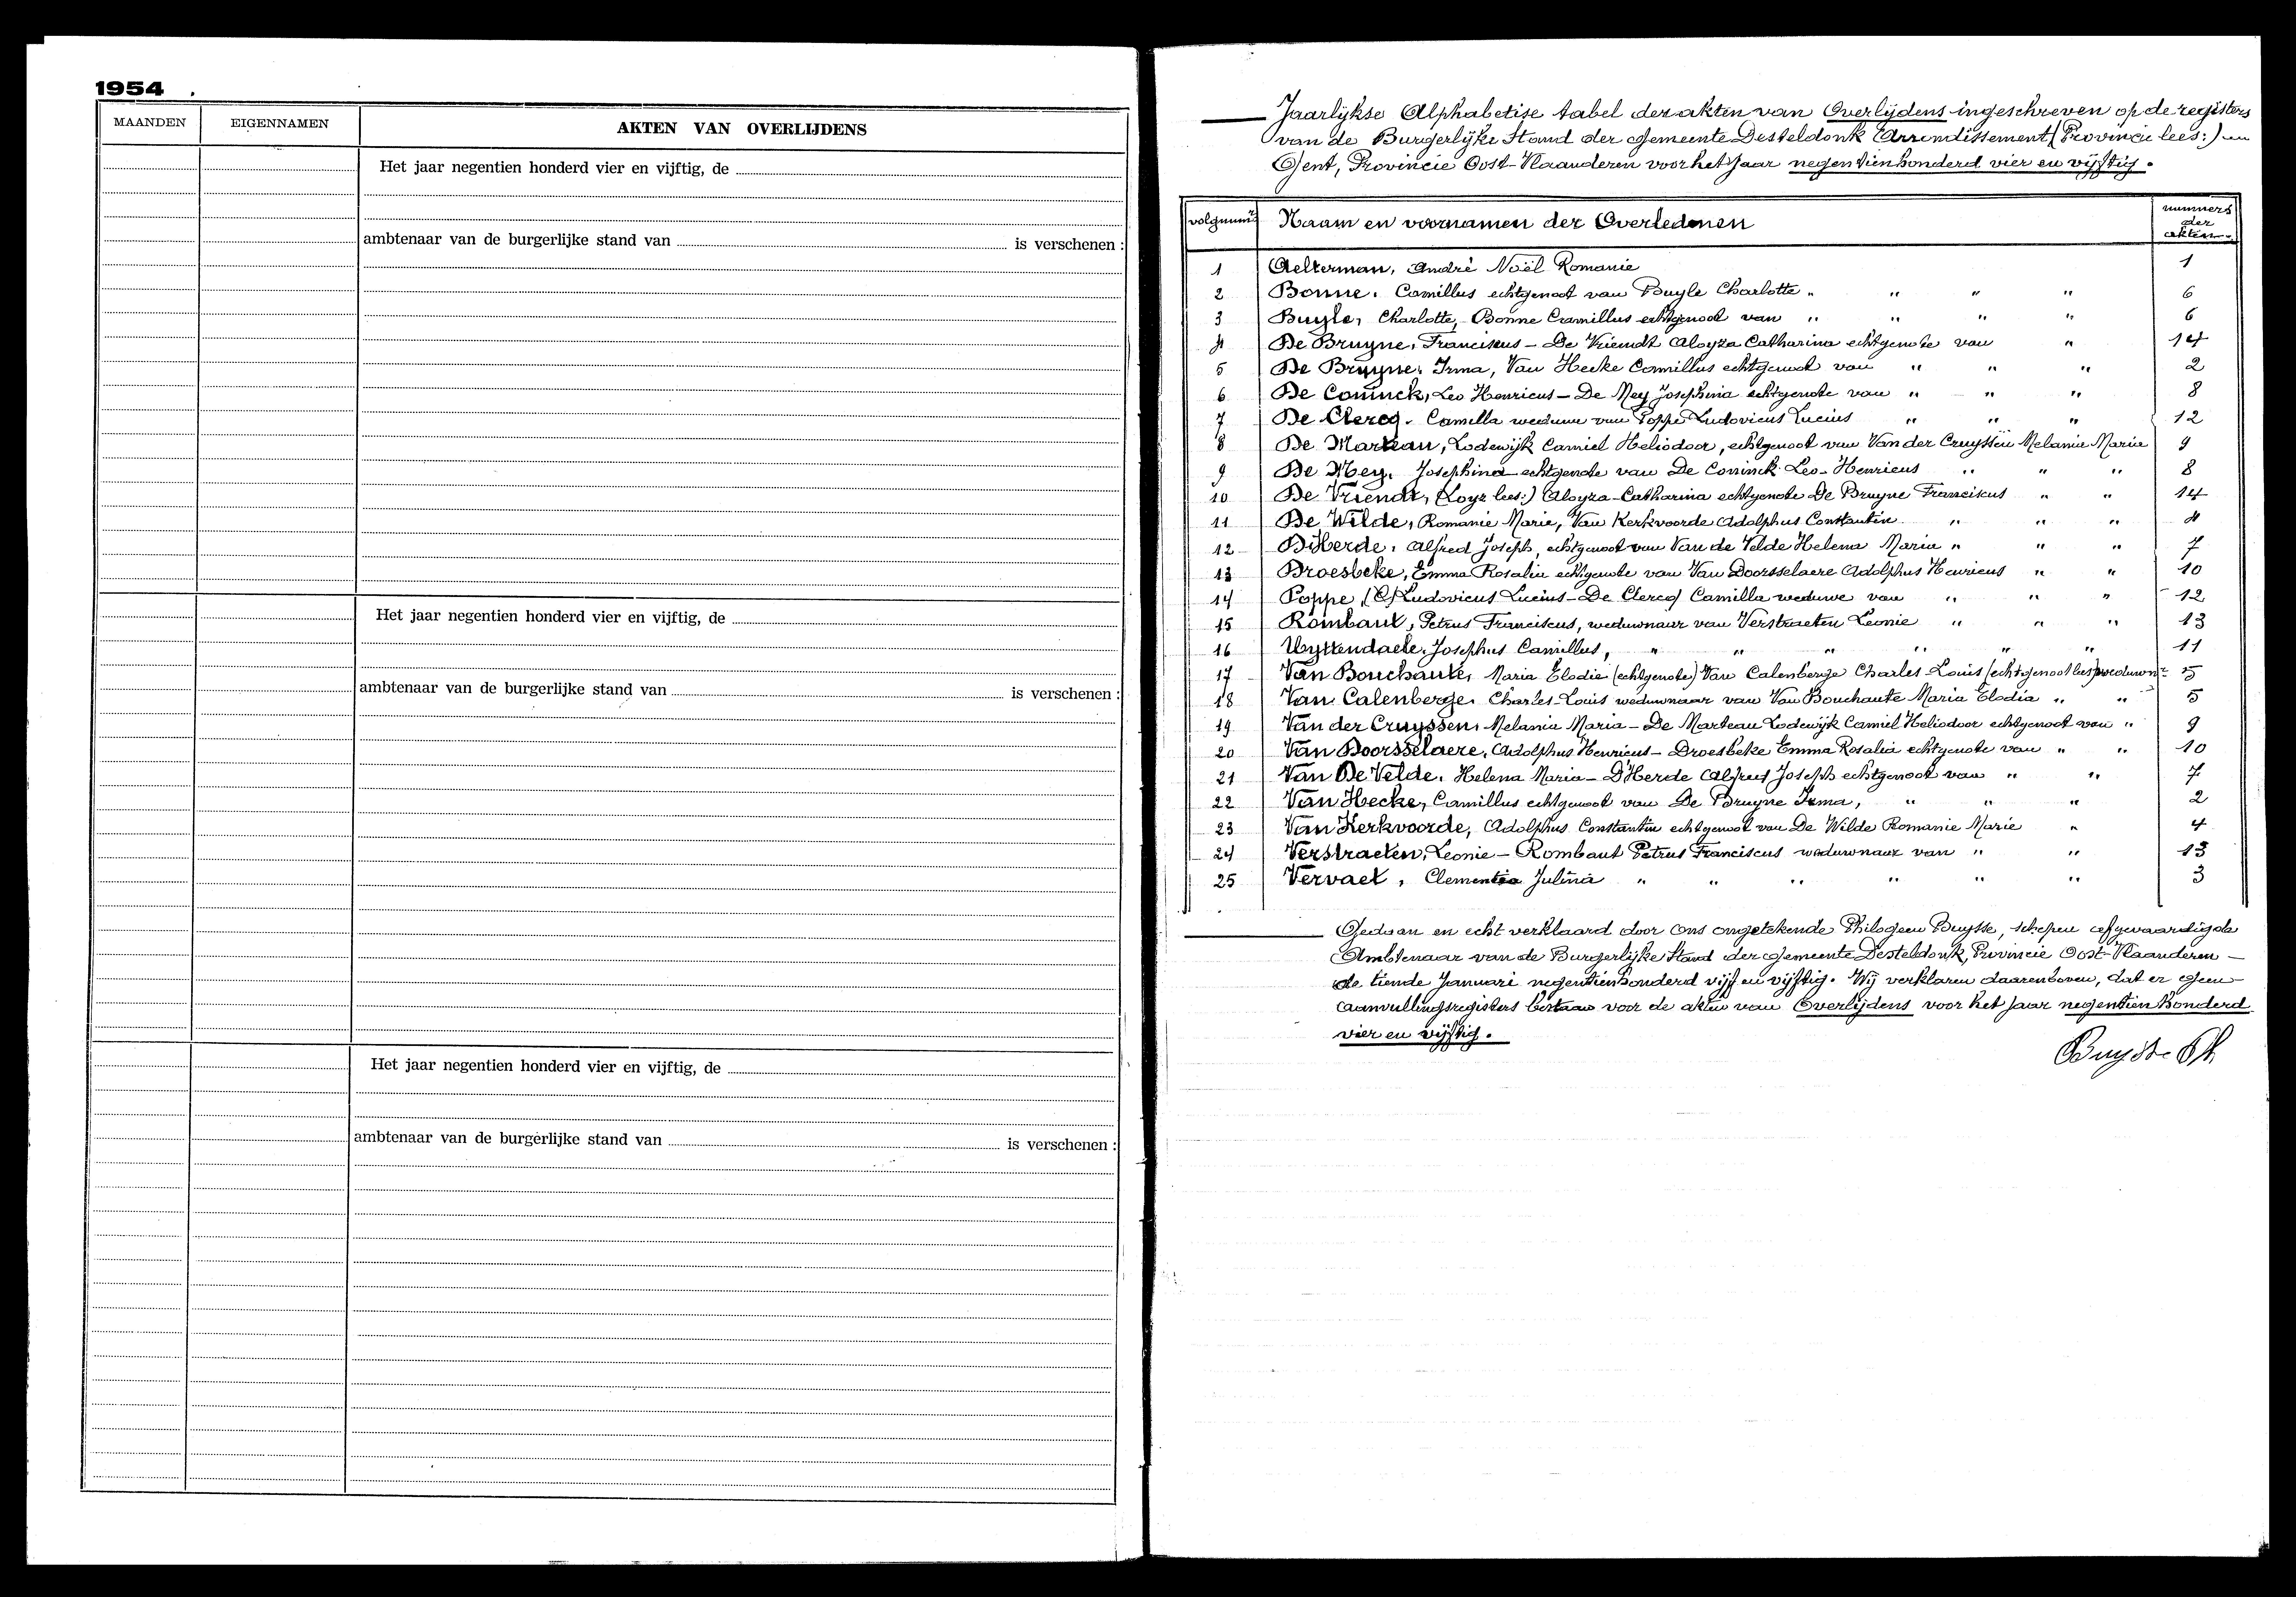 1954
MAANDEN EIGENNAMEN AKTEN VAN OVERLIJDENS
Het jaar negentien honderd vier en vijftig, de
ambtenaar van de burgerlijke stand van is verschenen :
Het jaar negentien honderd vier en vijftig, de
ambtenaar van de burgerlijke stand van is verschenen :
Het jaar negentien honderd vier en vijftig, de
ambtenaar van de burgerlijke stand van is verschenen :
Jaarlijkse Alphabetise tabel der akten van Overlijdens ingeschreven op de registers
van de Burgerlijke Stand der Gemeente Desteldonk (Arrondissement) (Provincie lees:)
Gent, Provincie Oost-Vlaanderen voor het Jaar negentienhonderd vier en vijftig.
volgnumrs Naam en voornamen der Overledenen nummers der akten
1 Aelterman, André Noël Romanie 1
2 Bonne, Camillus echtgenoot van Buyle Charlotte " " " " 6
3 Buyle, Charlotte, Bonne Camillus echtgenoot van " " " " 6
4 De Bruyne, Franciskus - De Vriendt Aloyza Catharina echtgenote van " 14
5 De Bruyne, Irma, Van Hecke Camillus echtgenoot van " " " 2
6 De Coninck, Leo Henricus - De Mey Josephina echtgenote van " " " 8
7 De Clercq, Camilla weduwe van Poppe Ludovicus Lucius " " " 12
8 De Marteau, Lodewijk Camiel Heliodoor, echtgenoot van Van der Cruyssen Melania Maria 9
9 De Mey, Josephina echtgenote van De Coninck Leo-Henricus " " " 8
10 De Vriendt, (Loyz lees:) Aloyza-Catharina echtgenote De Bruyne Franciskus " " 14
11 De Wilde, Romanie Marie, Van Kerkvoorde Adolphus Constantin " " " 4
12 D'Herde, Alfred Joseph, echtgenoot van Van de Velde Helena Maria " " " 7
13 Droesbeke, Emma Rosalia echtgenote van Van Doorsselaere Adolphus Henricus " " 10
14 Poppe, (C) Ludovicus Lucius - De Clercq Camilla weduwe van " " " 12
15 Rombaut, Petrus Franciscus, weduwnaar van Verstraeten Leonie " " " 13
16 Uyttendaele, Josephus Camillus, " " " " " " 11
17 Van Bouchaute, Maria Elodie (echtgenote) Van Calenberge Charles Louis (echtgenoot lees) weduwnr 5
18 Van Calenberge, Charles-Louis weduwnaar van Van Bouchaute Maria Elodia " " 5
19 Van der Cruyssen, Melania Maria - De Marteau Lodewijk Camiel Heliodoor echtgenoot van " 9
20 Van Doorsselaere, Adolphus Henricus - Droesbeke Emma Rosalia echtgenote van " " 10
21 Van De Velde, Helena Maria - D'Herde Alfred Joseph echtgenoot van " " 7
22 Van Hecke, Camillus echtgenoot van De Bruyne Irma, " " " 2
23 Van Kerkvoorde, Adolphus Constantin echtgenoot van De Wilde Romanie Marie " 4
24 Verstraeten, Leonie - Rombaut Petrus Franciscus weduwnaar van " " 13
25 Vervaet, Clementia Julina " " " " " " 3
Gedaan en echt verklaard door Ons ongetekende Philogeen Buysse, schepen afgevaardigde
Ambtenaar van de Burgerlijke Stand der Gemeente Desteldonk, Provincie Oost-Vlaanderen -
de tiende Januari negentienhonderd vijf en vijftig. Wij verklaren daarenboven, dat er geen
aanvullingsregisters bestaan voor de akten van Overlijdens voor het Jaar negentienhonderd
vier en vijftig.
Buysse Ph